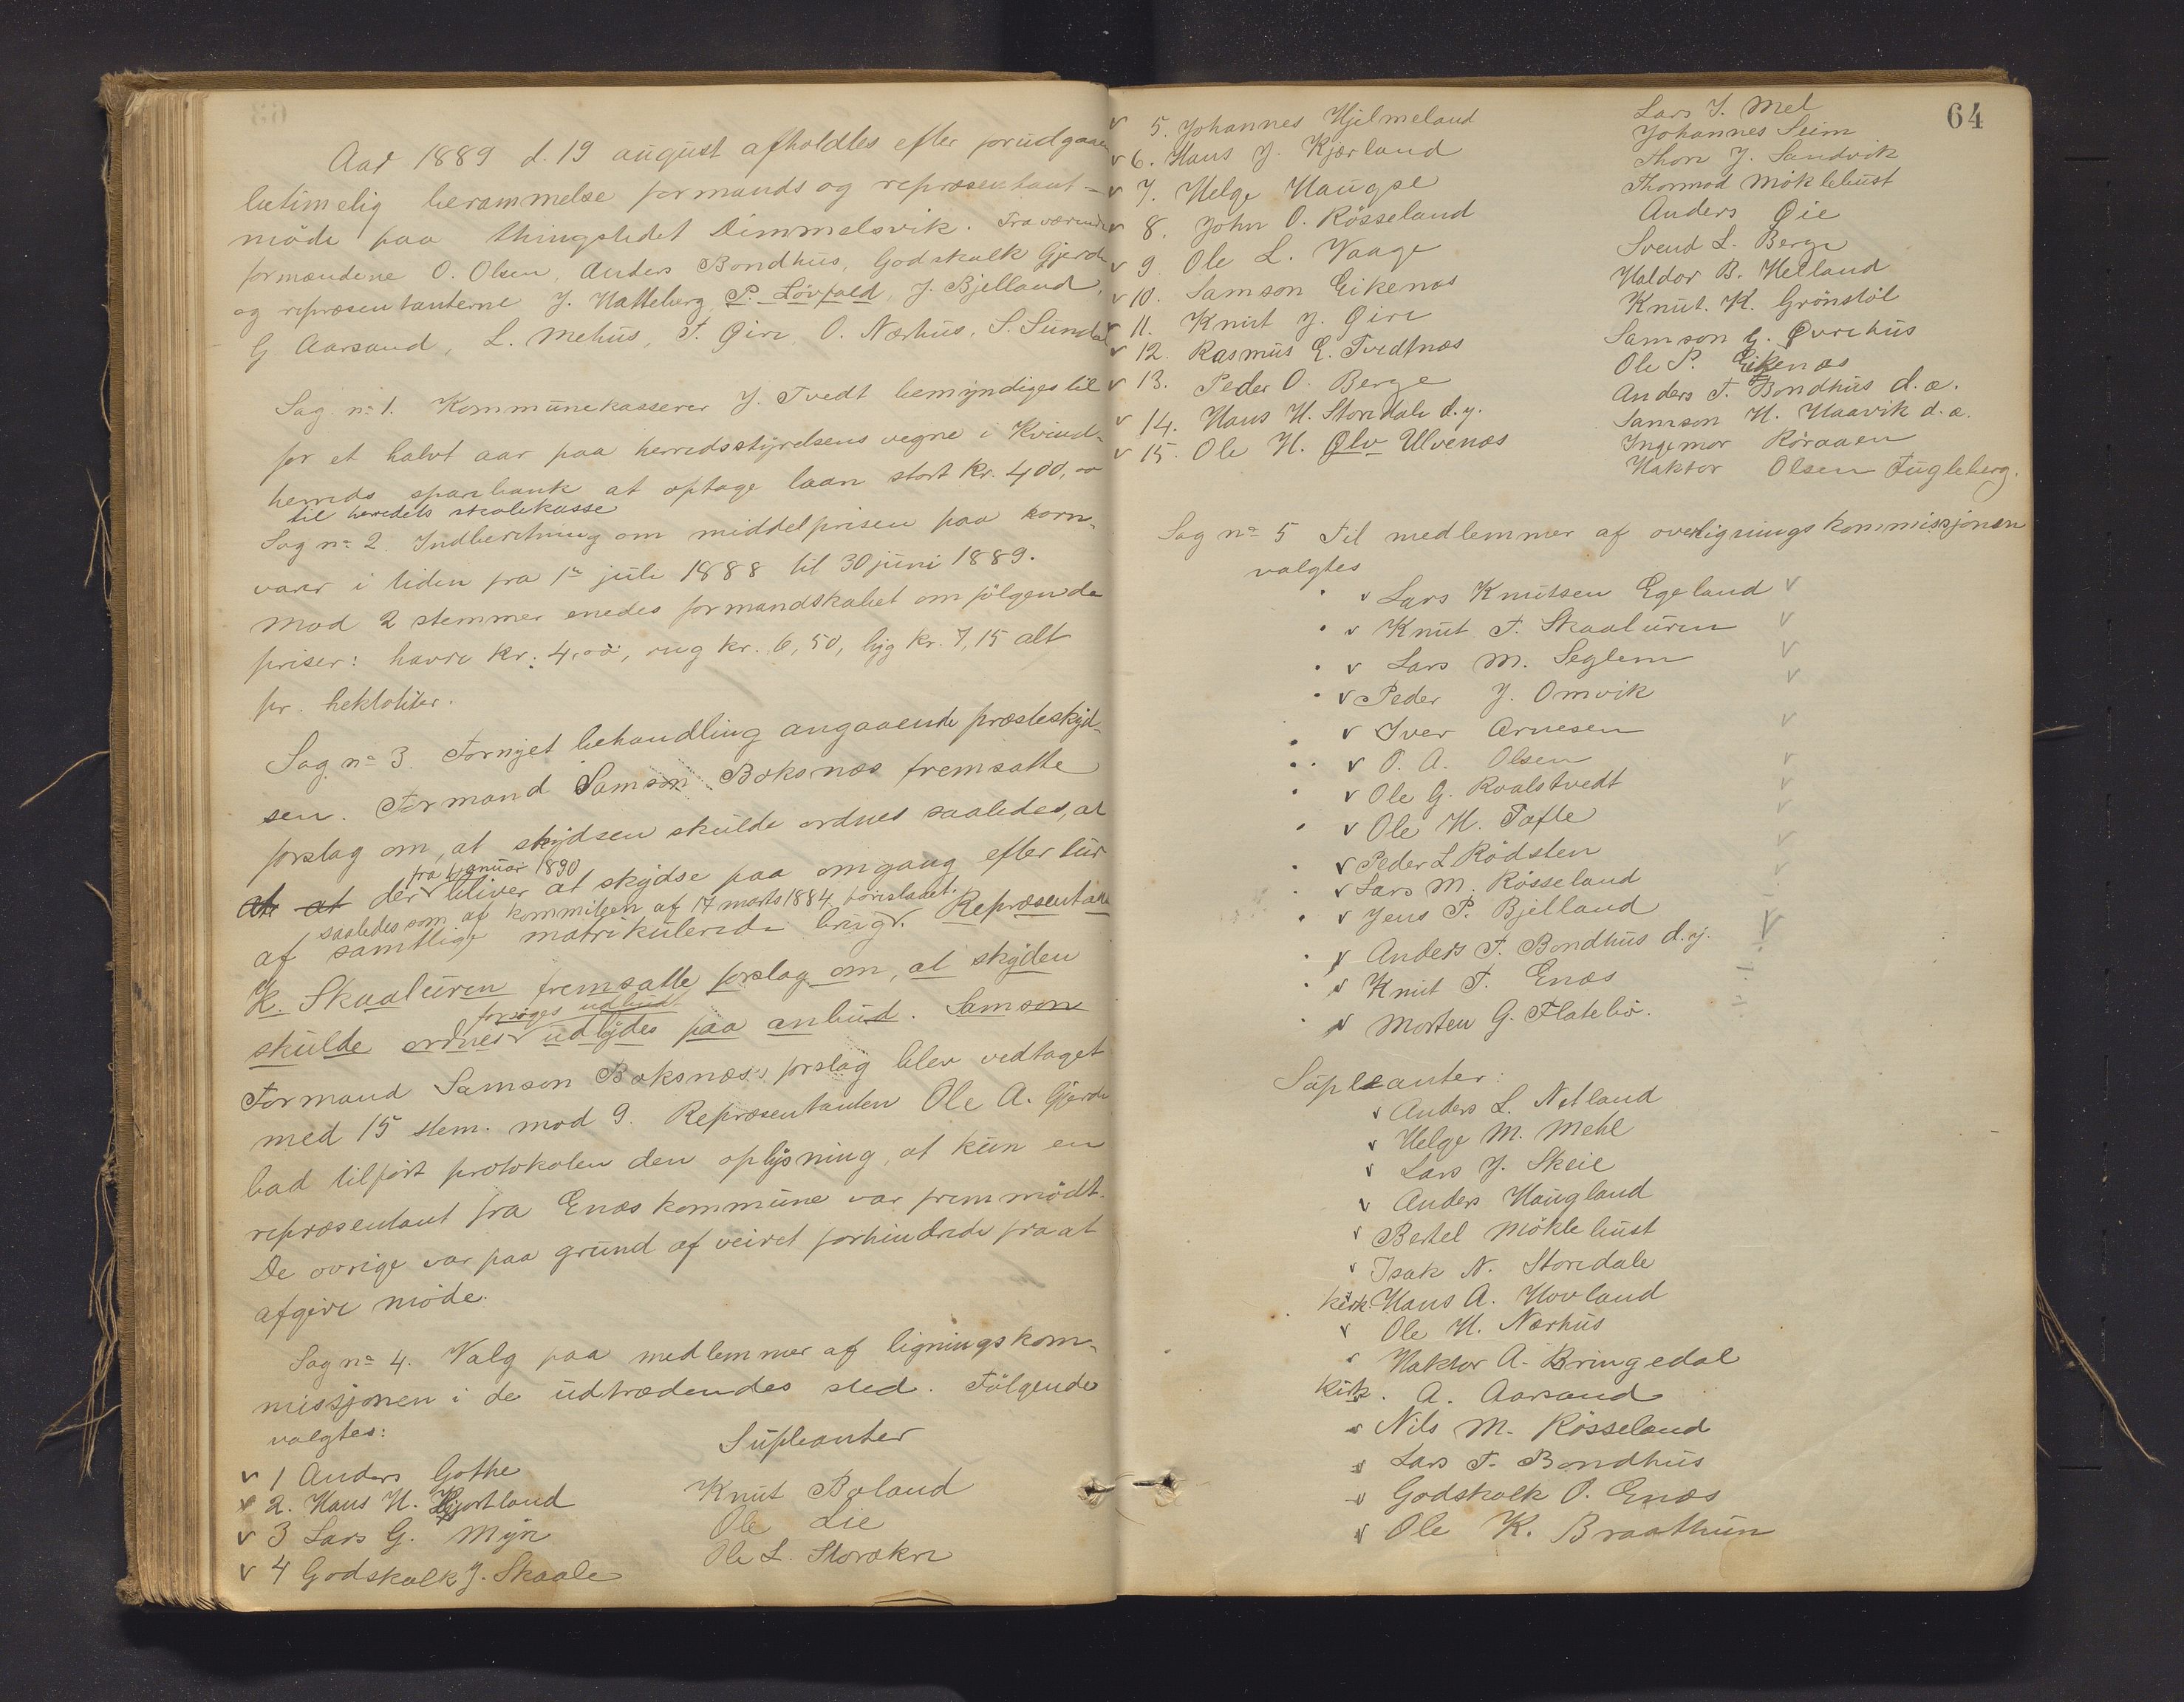 Aar 1889 d. 19 august afholdtes efter forudgaaen
betimelig berammelse formands og repræsentant-
möde paa thingstedet Dimmelsvik. Fraværende
formændene O. Olsen, Anders Bondhus, Godskalk Gjerde
og repræsentanterne J. Hatteberg, P. Løvfald, J. Bjelland,
G Aarsand, L. Mehus, T. Øire, O. Nærhus, S. Sundal
Sag nr 1. Kommunekasserer J. Tvedt bemyndiges til
for et halvt aar paa herredsstyrelsens vegne i Kvind-
herreds sparebank at optage laan stort kr. 400,00
til herredets skolekasse
Sag nr 2. Indberetning om middelprisen paa korn-
varer i tiden fra 1ste juli 1888 til 30 juni 1889.
Mod 2 stemmer enedes formandskabet om fölgende
priser: havre kr. 4,00, rug kr. 6,50, byg kr. 7,15 alt
pr. hektoliter.
Sag nr 3. Fornyet behandling angaaende præsteskyd-
sen. Formand Samson Baksnæs fremsatte
forslag om, at skydsen skulde ordnes saaledes, at
fra 1 januar 1890
at der bliver at skydse paa omgang efter tur
saaledes som af kommiteen af 17 marts 1884 foreslaaet.
af samtlige matrikulerede brug. Repræsentant
K. Skaaluren fremsatte forslag om, at skyden
forsøges udbudt
skulde ordnes udbydes paa anbud. Samson
Formand Samson Baksnæs's forslag blev vedtaget
med 15 stem. mod 9. Repræsentanten Ole A. Gjerde
bad tilført protokolen den oplysning, at kun en
repræsentant fra Enæs kommune var fremmödt.
De øvrige var paa grund af veiret forhindrede fra at
afgive möde.
Sag nr 4. Valg paa medlemmer af ligningskom-
missjonen i de udtrædendes sted. Fölgende
valgtes:
Supleanter
1 Anders Gothe Knut Baland
2. Hans H. Hjortland Ole Lie
3 Lars G. Myre Ole L. Storakre
4 Godskalk J. Skaale
64
5. Johannes Hjelmeland Lars J. Mel
6. Hans J. Kjærland Johannes Seim
7. Helge Haugse Thore J. Sandvik
8. John O. Rösseland Thormod Möklebust
9 Ole L. Vaage Anders Øie
10. Samson Eikenæs Svend L. Berge
11. Knut J. Øire Haldor B. Helland
12. Rasmus E. Tvedtnæs Knut K. Grönstöl
13. Peder O. Berge Samson G. Øvrehus
14. Hans H. Storedale d.y. Ole P. Eikenæs
15. Ole H. Ølv Ulvenæs Anders T. Bondhus d.æ.
Samson H. Haavik d.æ.
Ingemar Röraaen
Haktor Olsen Fugleberg.
Sag nr 5 Til medlemmer af overligningskommissjonen
valgtes
Lars Knutsen Egeland
Knut T. Skaaluren
Lars M. Seglem
Peder J. Omvik
Iver Arnesen
O. A. Olsen
Ole G. Kvalstvedt
Ole H. Tofte
Peder L Rödsten
Lars M. Rösseland
Jens P. Bjelland
Anders T. Bondhus d.y.
Knut T. Enæs
Morten G. Flatebö.
Supleanter:
Anders L. Netland
Helge M. Mehl
Lars J. Skeie
Anders Haugland
Bertel Möklebust
Isak N. Storedale
Kirk. Hans A. Hovland
Ole H. Nærhus
Haktor A. Bringedal
Kirk. A. Aarsand
Nils M. Rösseland
Lars T. Bondhus
Godskalk O. Enæs
Ole K. Braathun